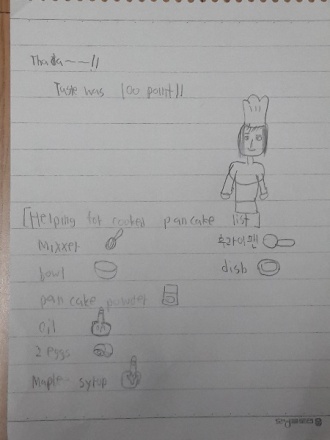 Thada~~!!
Taste was 100 point!!
[Helping for cooked pancake list]
Mixxer
후라이팬
bowl
dish
pan cake powder
oil
2 eggs
Maple syrup